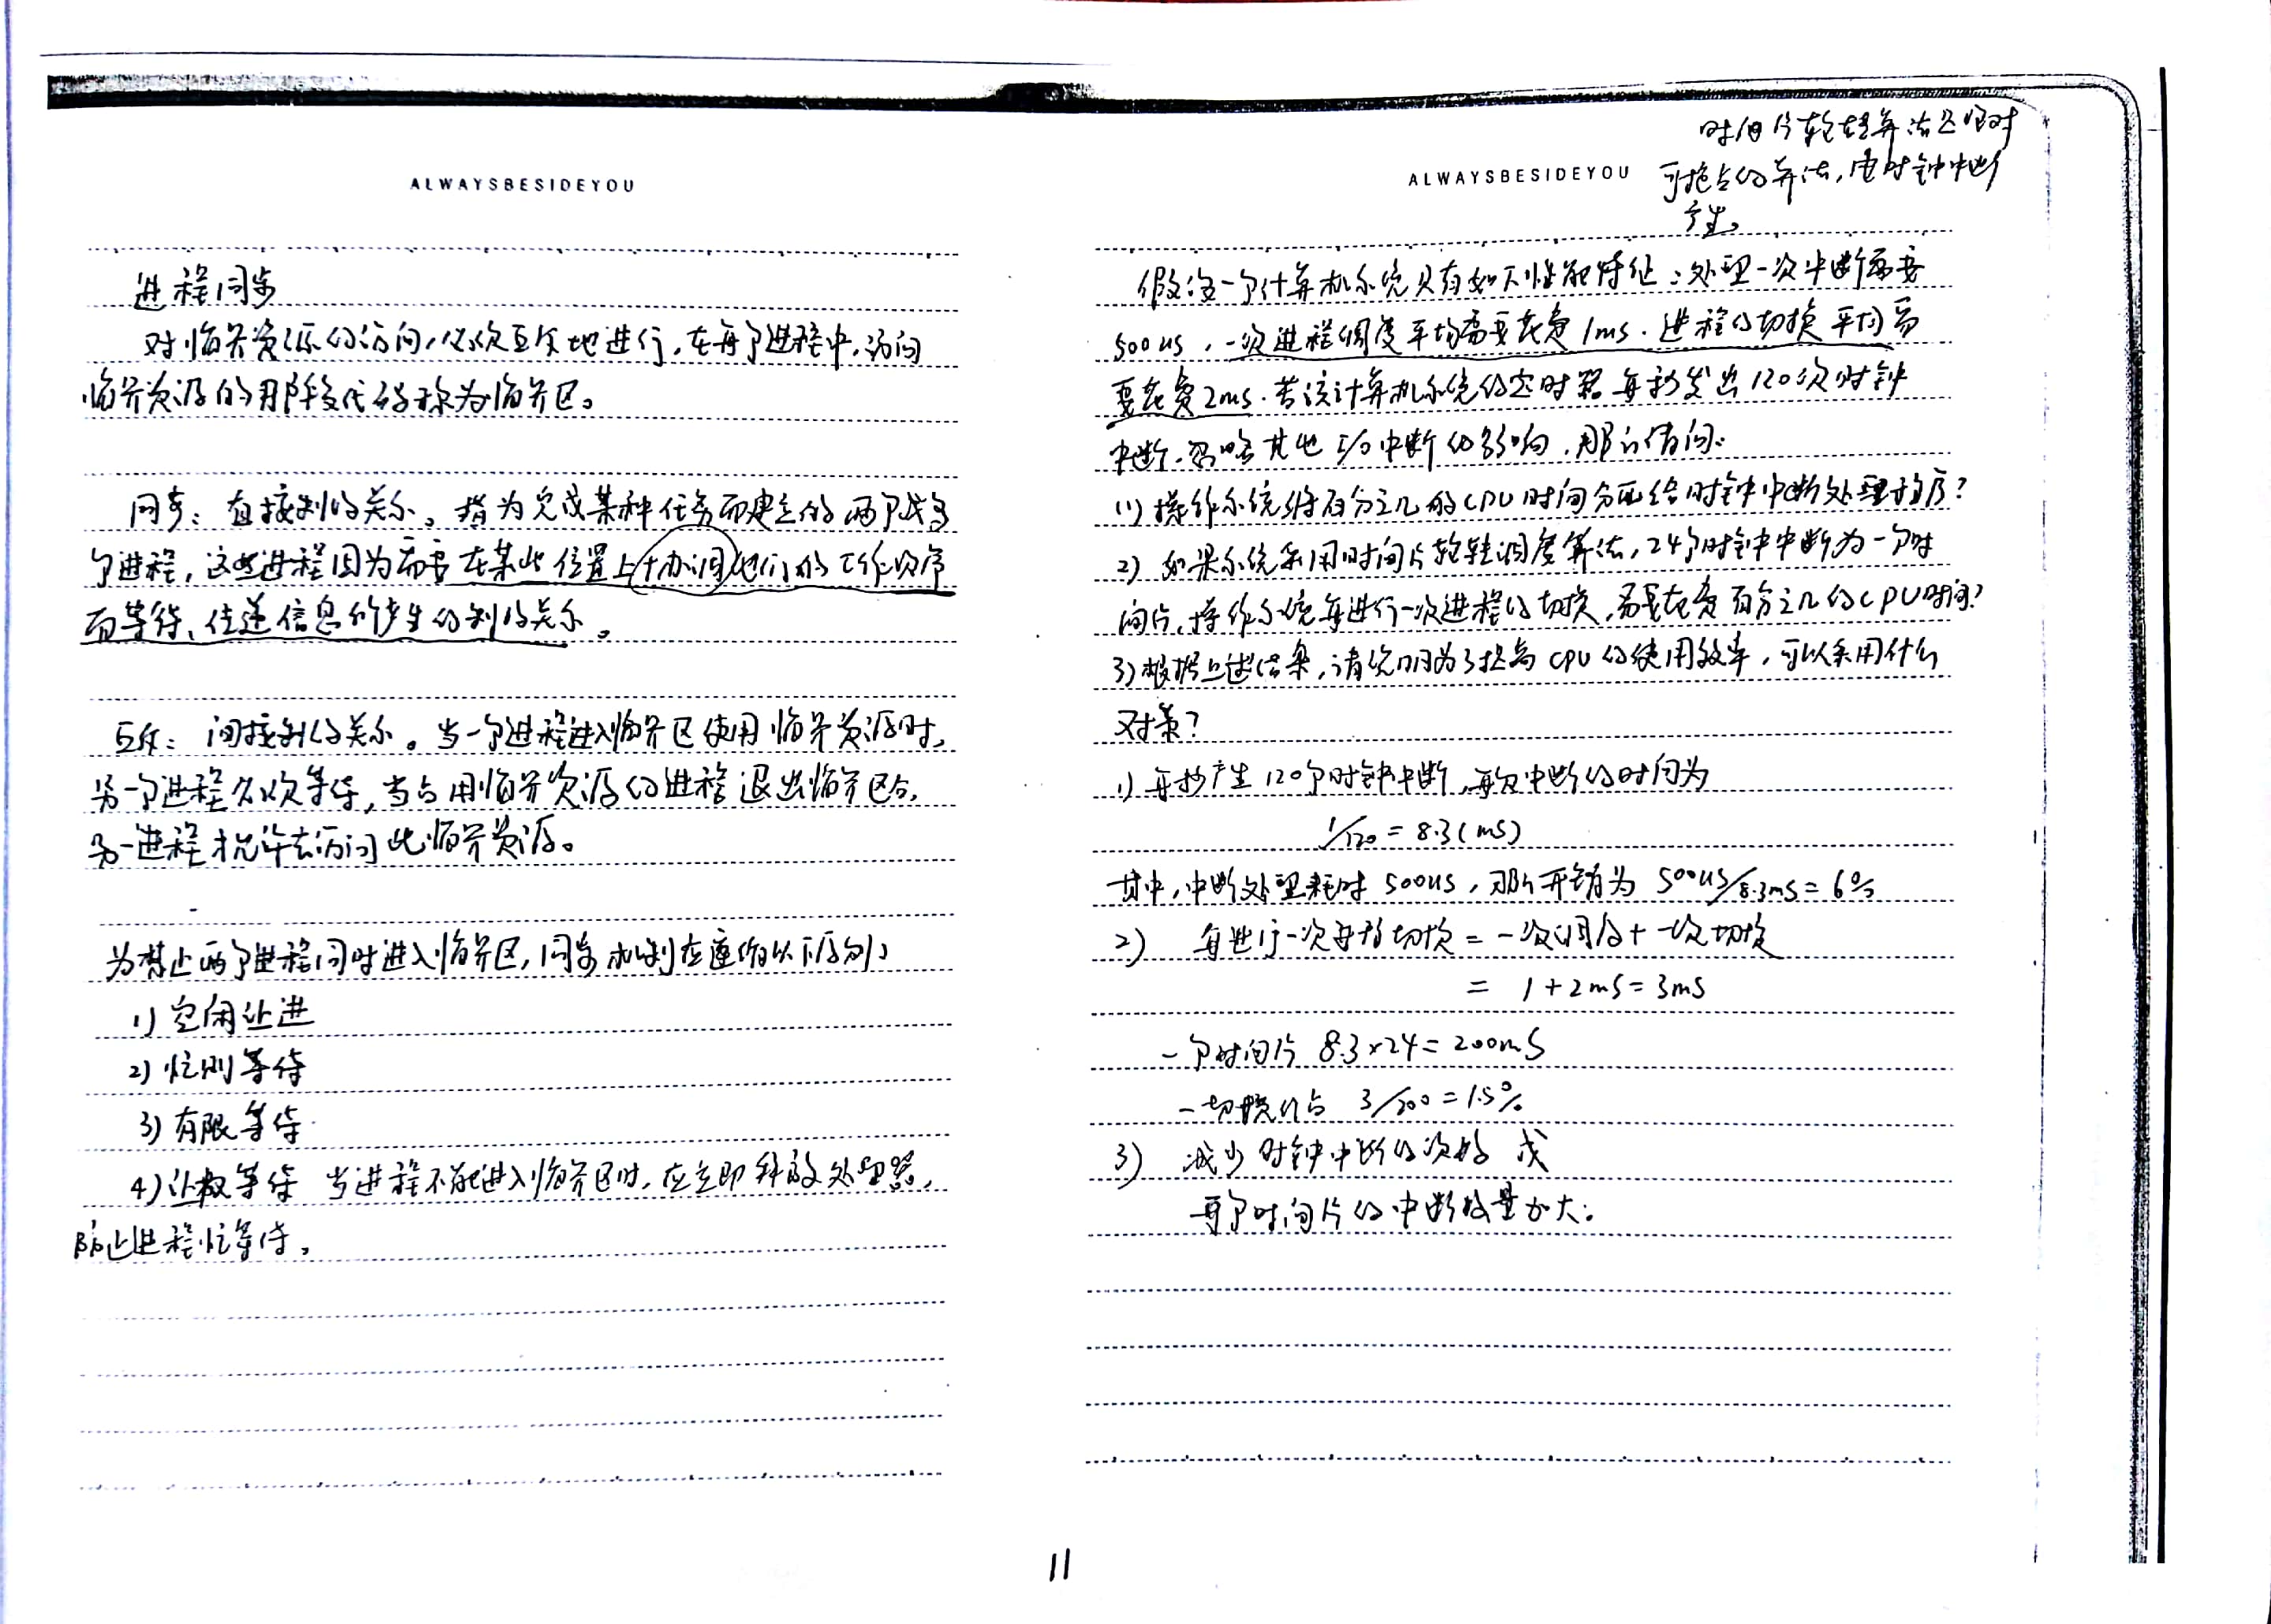 ALWAYSBESIDEYOU
进程同步
对临界资源的访问,必须互斥地进行,在每个进程中,访问
临界资源的那段代码称为临界区。
同步:直接制约关系。指为完成某种任务而建立的两个或多
个进程,这些进程因为需要在某些位置上协调他们的工作次序
而等待、传递信息所产生的制约关系。
互斥:间接制约关系。当一个进程进入临界区使用临界资源时,
另一个进程必须等待,当占用临界资源的进程退出临界区后,
另一进程才允许去访问此临界资源。
为禁止两个进程同时进入临界区,同步机制应遵循以下原则:
1) 空闲让进
2) 忙则等待
3) 有限等待
4) 让权等待 当进程不能进入临界区时,应立即释放处理器,
防止进程忙等待。
ALWAYSBESIDEYOU
时间片轮转算法是绝对
可抢占的算法,由时钟中断
产生。
假设一个计算机系统具有如下性能特征:处理一次中断需要
500us,一次进程调度平均需要花费1ms.进程的切换平均需
要花费2ms.若该计算机系统的定时器每秒发出120次时钟
中断.忽略其他I/O中断的影响,那么请问:
(1) 操作系统将百分之几的CPU时间分配给时钟中断处理程序?
2) 如果系统采用时间片轮转调度算法,24个时钟中断为一个时
间片,操作系统每进行一次进程的切换,需要花费百分之几的CPU时间?
3) 根据上述结果,请说明为了提高CPU的使用效率,可以采用什么
对策?
1) 每秒产生120个时钟中断,每次中断的时间为
1/120 = 8.3(ms)
其中,中断处理耗时500us,那么开销为 500us/8.3ms = 6%
2) 每进行一次进程切换 = 一次调度 + 一次切换
= 1 + 2ms = 3ms
一个时间片 8.3×24 = 200ms
一切换的占 3/200 = 1.5%
3) 减少时钟中断的次数 或
每个时间片的中断数量加大.
11